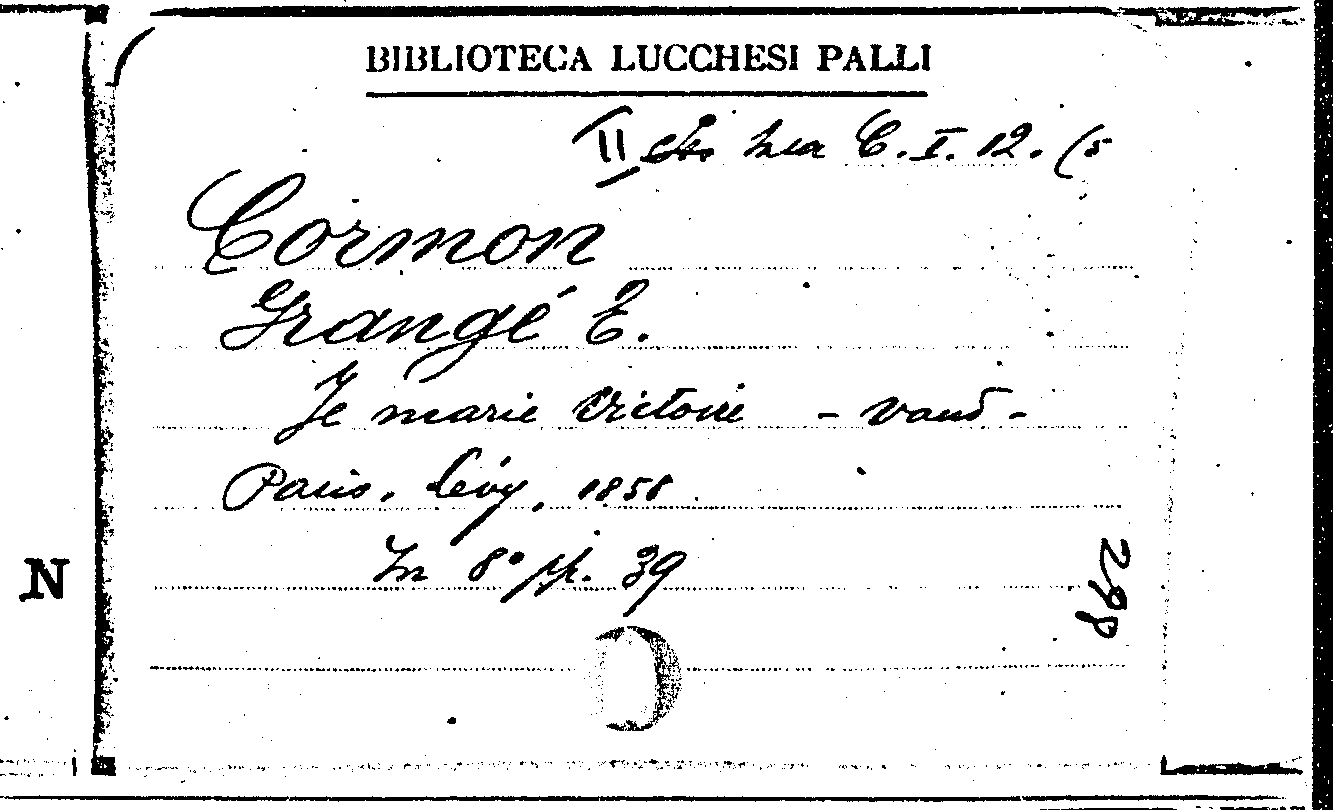 BIBLIOTECA LUCCHESI PALLI
II C. I. 12. (5
Cormon
Grangé E.
Je marie Victoire - vaud -
Paris. Lévy, 1858
In 8° pp. 39
298
N